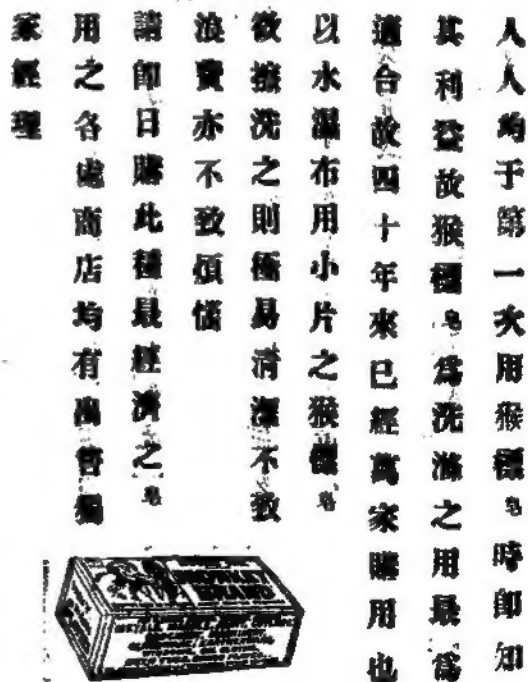 人人均于第一次用猴標皂時即知
其利益故猴標皂爲洗滌之用最爲
適合故四十年來已經萬家購用也
以水濕布用小片之猴標皂
欲擦洗之則極易清潔不致
浪費亦不致煩惱
請即日購此種最經濟之皂
用之各處商店均有出售獨
家經理
MONKEY
BRAND